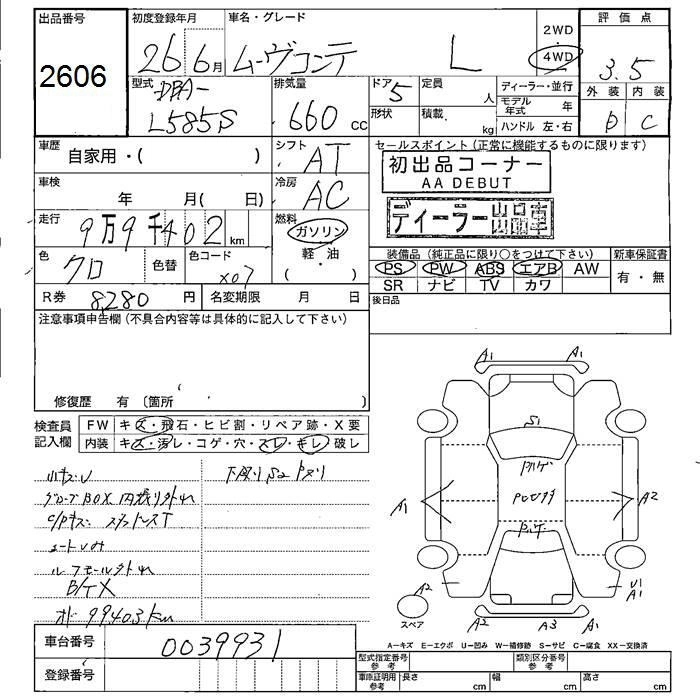 出品番号
2606
初度登録年月
26 6月
車名・グレード
ムーヴコンテ L
2WD
4WD
評価点
3.5
外装 内装
D C
型式
DBA-
L585S
排気量
660 cc
ドア 5
形状
定員 人
積載 kg
ディーラー・並行
モデル年式 年
ハンドル 左・右
車歴
自家用・( )
シフト
AT
セールスポイント(正常に機能するものに限ります)
初出品コーナー
AA DEBUT
ディーラー出品車
車検
年 月( 日)
冷房
AC
走行
9万9千402 km
燃料
ガソリン
軽・油
( )
色
クロ
色替
色コード
X07
装備品(純正品に限り○をつけて下さい)
新車保証書
PS PW ABS エアB AW
SR ナビ TV カワ
有・無
R券 8280 円
名変期限 月 日
後日品
注意事項申告欄(不具合内容等は具体的に記入して下さい)
修復歴 有 〔箇所 〕
検査員
記入欄
FW キズ・飛石・ヒビ割・リペア跡・X要
内装 キズ・汚レ・コゲ・穴・スレ・キレ・破レ
小キズU
下廻りS2 Pヌリ
グローブBOX 内張り外れ
C/Pキズ スタッドレスT
シートしみ
ルーフモール外れ
B/TX
オド 99403km
A1 A1
S1
Pハゲ
A1
A2
Pハゲ
A2
U1
A1
スペア
A2 A3 A1
A－キズ E－エクボ U－凹み W－補修跡 S－サビ C－腐食 XX－交換済
車台番号
0039931
登録番号
型式指定番号
参考
類別区分番号
参考
車庫証明用
参考
長さ cm
幅 cm
高さ cm